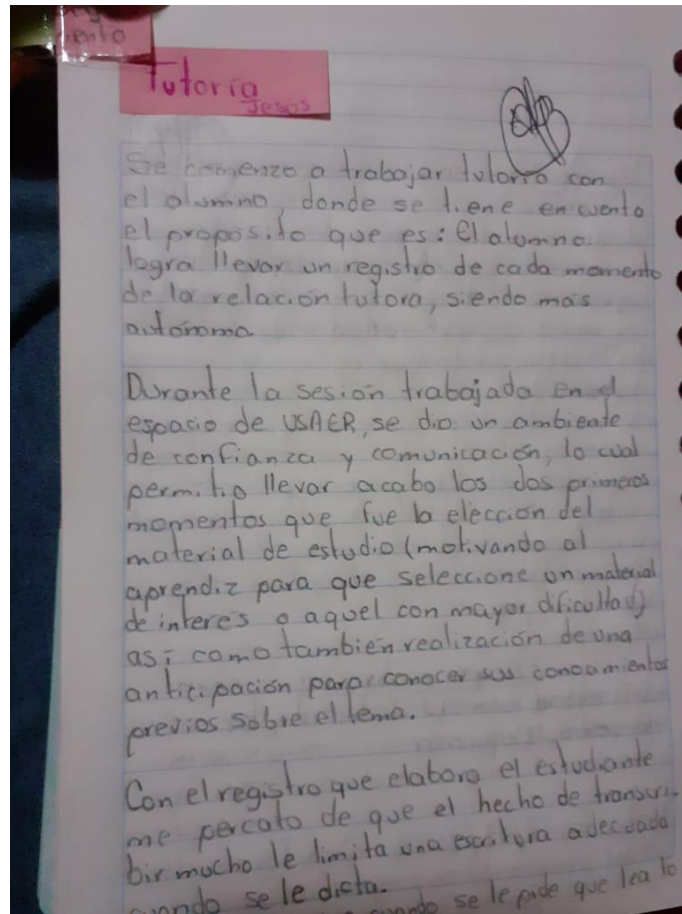 iento
Tutoría
Jesús
Se comenzo a trabajar tutoria con
el alumno, donde se tiene en cuenta
el proposito que es: El alumno
logra llevar un registro de cada momento
de la relación tutora, siendo más
autónomo.
Durante la sesión trabajada en el
espacio de USAER, se dio un ambiente
de confianza y comunicación, lo cual
permitio llevar acabo los dos primeros
momentos que fue la elección del
material de estudio (motivando al
aprendiz para que seleccione un material
de interes o aquel con mayor dificultad)
así como tambien realización de una
anticipación para conocer sus conocimientos
previos sobre el tema.
Con el registro que elaboro el estudiante
me percato de que el hecho de transcri-
bir mucho le limita una escritura adecuada
cuando se le dicta.
cuando se le pide que lea lo